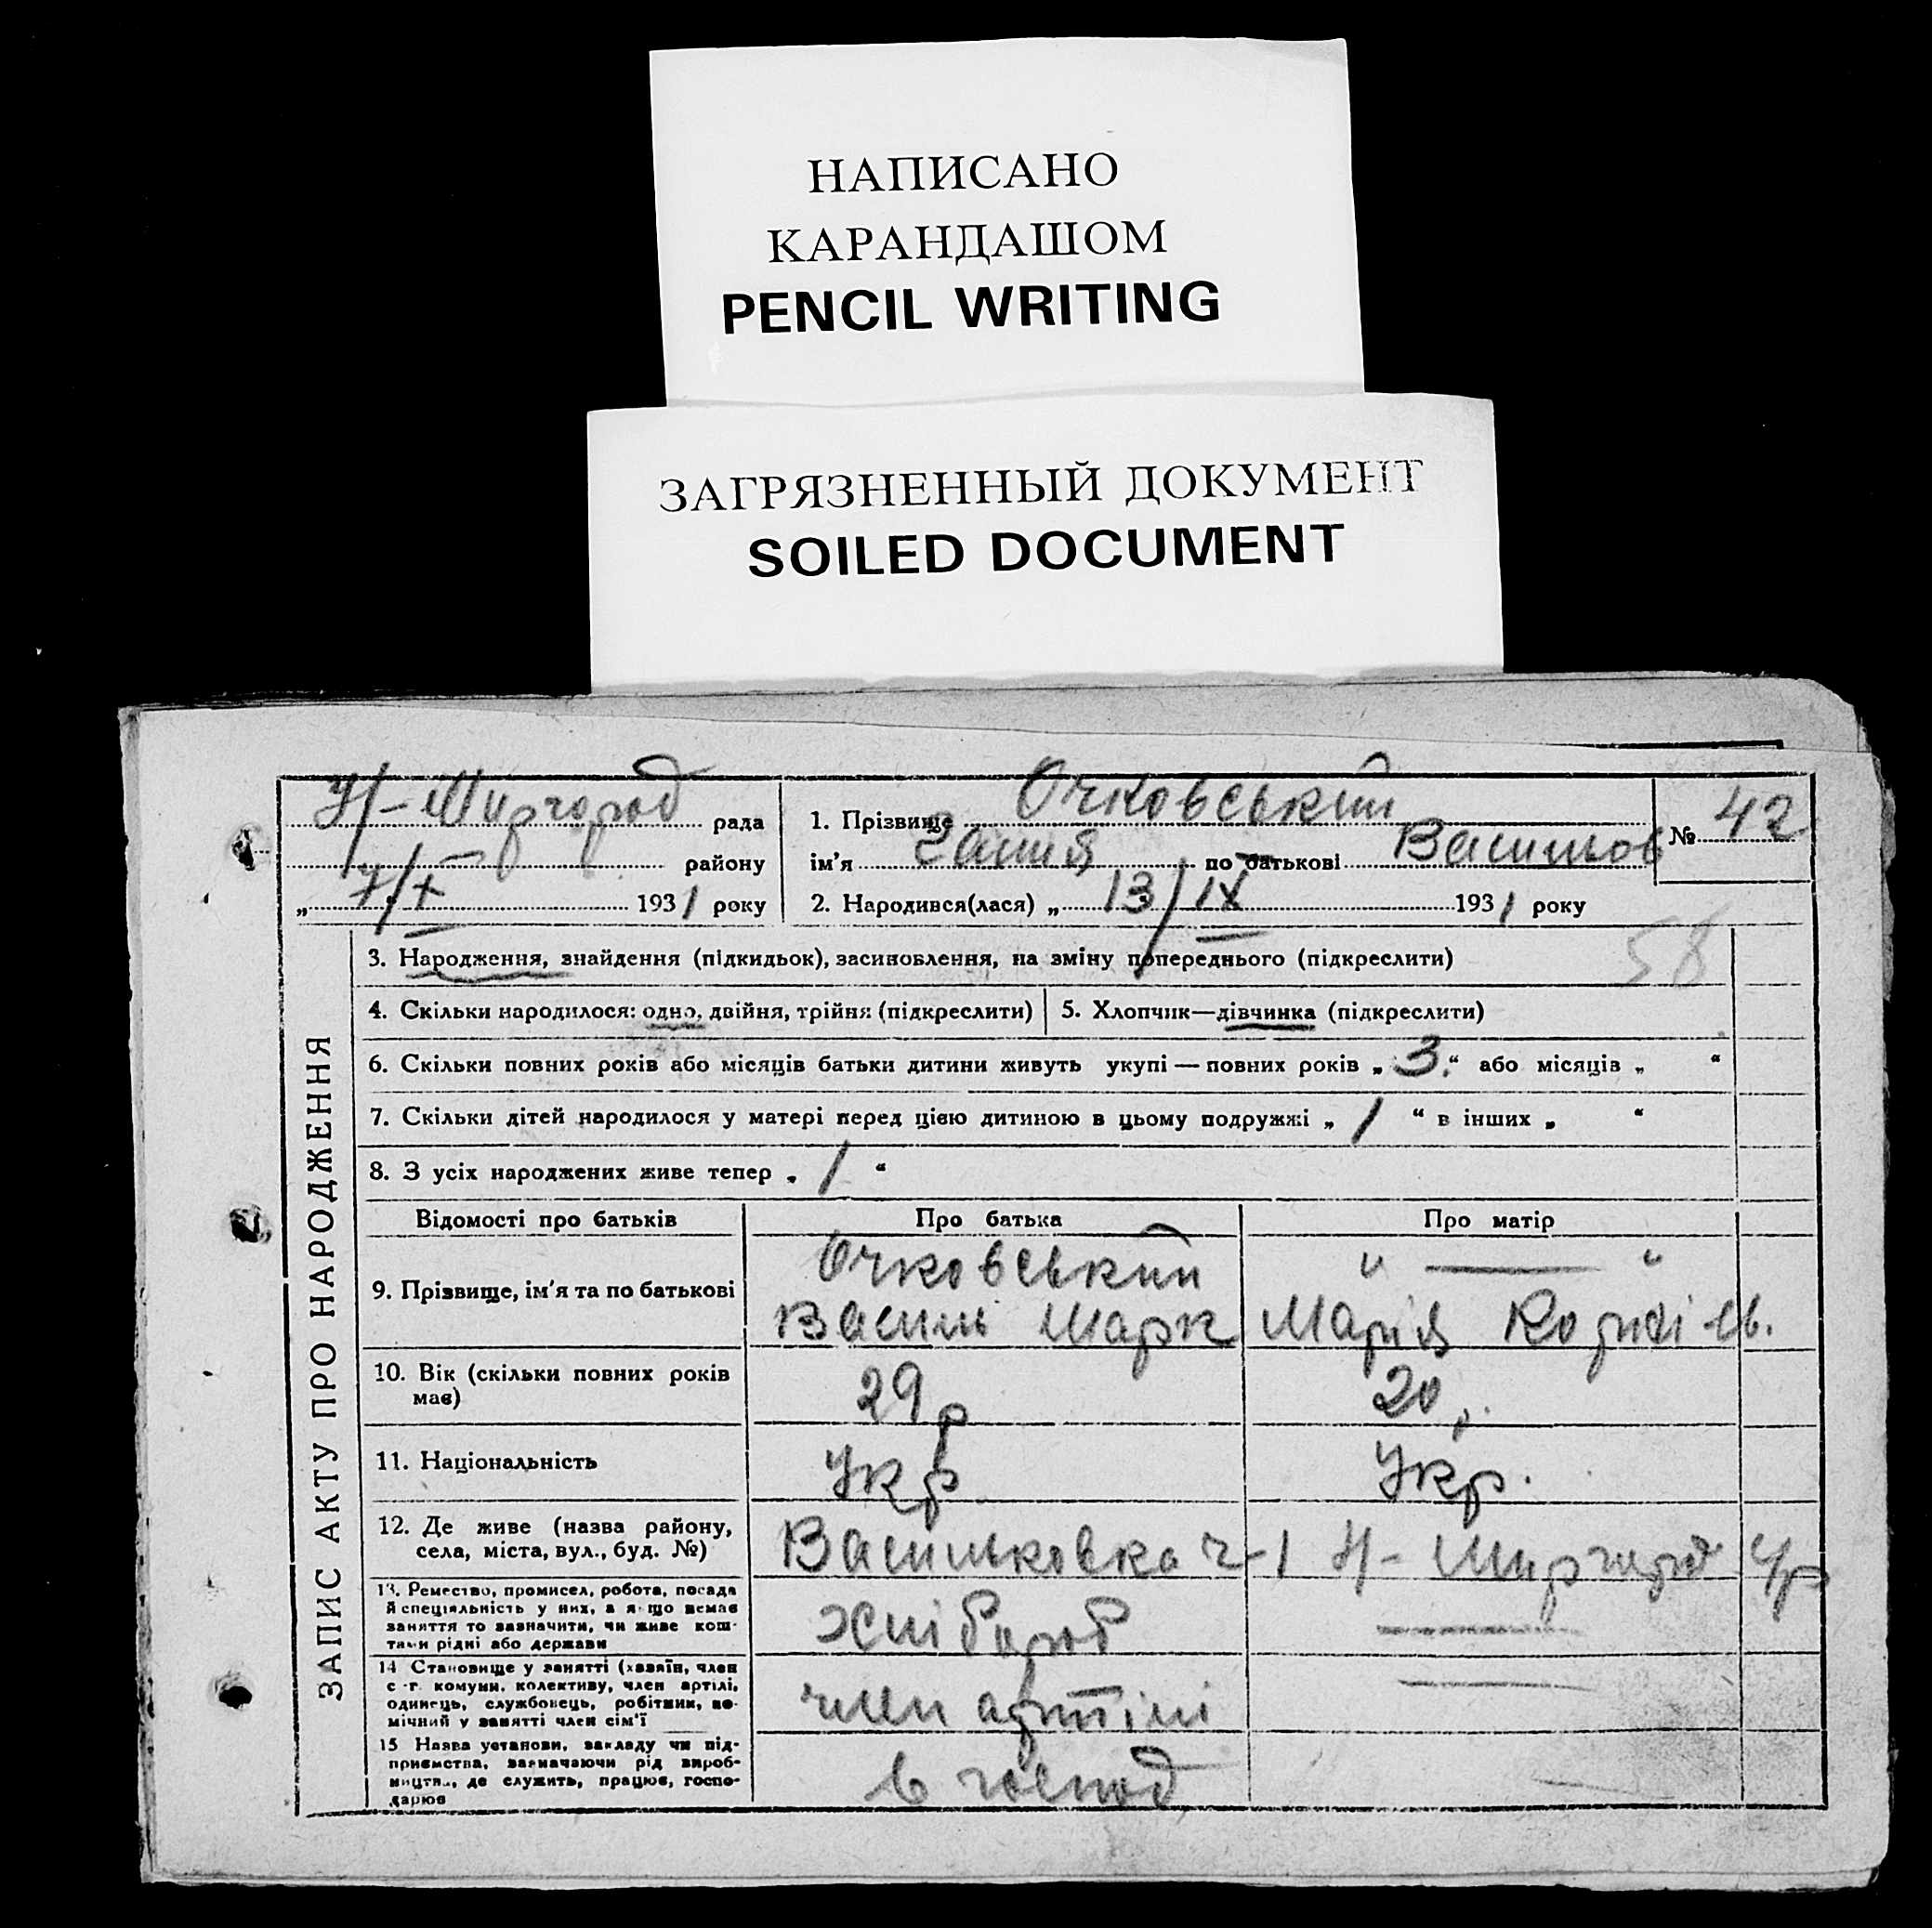 НАПИСАНО
КАРАНДАШОМ
PENCIL WRITING
ЗАГРЯЗНЕННЫЙ ДОКУМЕНТ
SOILED DOCUMENT
Н-Миргород рада
району
„ 7/X 1931 року
1. Прізвище Очковський
ім'я по батькові Васильов
№ 42
2. Народився(лася) „ 13/IX 1931 року
58
ЗАПИС АКТУ ПРО НАРОДЖЕННЯ
3. Народження, знайдення (підкидьок), засиновлення, на зміну попереднього (підкреслити)
4. Скільки народилося: одно, двійня, трійня (підкреслити) 5. Хлопчик—дівчинка (підкреслити)
6. Скільки повних років або місяців батьки дитини живуть укупі — повних років „ 3 “ або місяців „ “
7. Скільки дітей народилося у матері перед цією дитиною в цьому подружжі „ 1 “ в інших „ “
8. З усіх народжених живе тепер „ 1 “
Відомості про батьків Про батька Про матір
9. Прізвище, ім'я та по батькові
Очковський
Василь Марк
" —— "
Марія Корнієв.
10. Вік (скільки повних років
має)
29 р
20 р.
11. Національність
Укр
Укр.
12. Де живе (назва району,
села, міста, вул., буд. №)
Васильковка ч-1 Н-Миргород
13. Ремество, промисел, робота, посада
й спеціяльність у них, а якщо немає
заняття то зазначити, чи живе кош-
тами рідні або держави
хлібороб
14 Становище у занятті (хазяїн, член
с.-г. комуни, колективу, член артілі,
одинець, службовець, робітник, по-
мічний у занятті член сім'ї
член артілі
15 Назва установи, закладу чи під-
приємства, зазначаючи рід вироб-
ництва, де служить, працює, госпо-
дарює
в господ